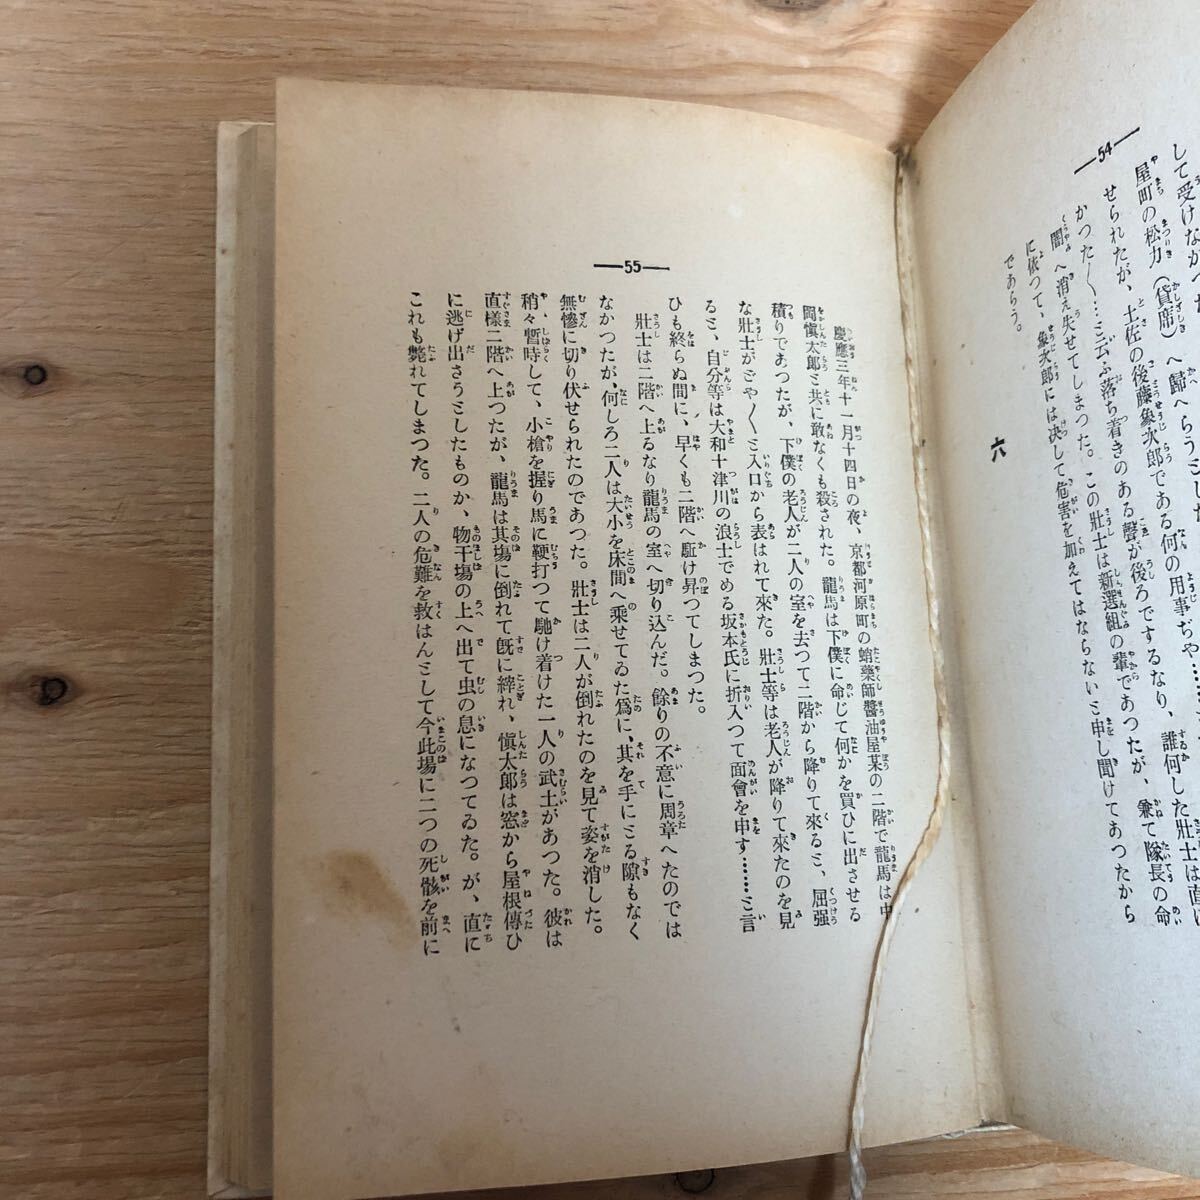 —54—
して受けなかつ
屋町の松力(貸席)へ歸へらうとした
せられたが、土佐の後藤象次郎である何の用事ぢや……
かつた〱…と云ふ落ち着きのある聲が後ろでするなり、誰何した壯士は直に
闇へ消え失せてしまつた。この壯士は新選組の輩であつたが、兼て隊長の命
に依つて、象次郎には決して危害を加えてはならないと申し聞けてあつたから
であらう。
六
—55—
慶應三年十一月十四日の夜、京都河原町の蛸藥師醬油屋某の二階で龍馬は中
岡愼太郎と共に敢なくも殺された。龍馬は下僕に命じて何かを買ひに出させる
積りであつたが、下僕の老人が二人の室を去つて二階から降りて來ると、屈强
な壯士がどや〱と入口から表はれて來た。壯士等は老人が降りて來たのを見
ると、自分等は大和十津川の浪士でめる坂本氏に折入つて面會を申す……と言
ひも終らぬ間に、早くも二階へ駈け昇つてしまつた。
壯士は二階へ上るなり龍馬の室へ切り込んだ。餘りの不意に周章へたのでは
なかつたが、何しろ二人は大小を床間へ乘せてゐた爲に、其を手にとる隙もなく
無慘に切り伏せられたのであつた。壯士は二人が倒れたのを見て姿を消した。
稍々暫時して、小槍を握り馬に鞭打つて馳け着けた一人の武士があつた。彼は
直樣二階へ上つたが、龍馬は其塲に倒れて旣に縡れ、愼太郎は窓から屋根傳ひ
に逃げ出さうとしたものか、物干塲の上へ出て虫の息になつてゐた。が、直に
これも斃れてしまつた。二人の危難を救はんとして今此場に二つの死骸を前に